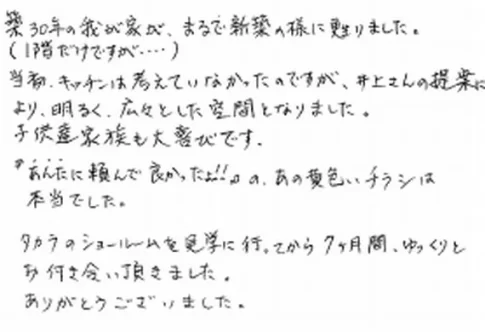 築30年の我が家が、まるで新築の様に甦りました。
(1階だけですが・・・・)
当初、キッチンは考えていなかったのですが、井上さんの提案に
より、明るく、広々とした空間となりました。
子供達家族も大喜びです。
『あんたに頼んで良かったよ!!』の、あの黄色いチラシは
本当でした。
タカラのショールームを見学に行ってから7ヶ月間、ゆっくりと
お付き合い頂きました。
ありがとうございました。